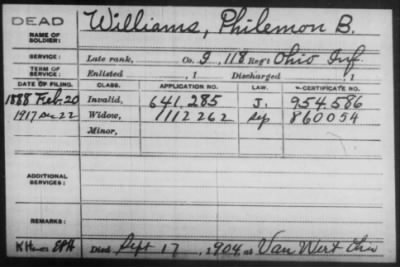 DEAD
NAME OF SOLDIER: Williams, Philemon B.
SERVICE: Late rank, Co. I, 118 Reg't Ohio Inf.
TERM OF SERVICE: Enlisted , 1 Discharged , 1
DATE OF FILING. CLASS. APPLICATION NO. LAW. CERTIFICATE NO.
1888 Feb. 20 Invalid, 641.285 J. 954.586
1917 Dec 22 Widow, 1112262 860054
Minor,
ADDITIONAL SERVICES:
REMARKS:
Died Sept 17, 1904, at Van Wert Ohio